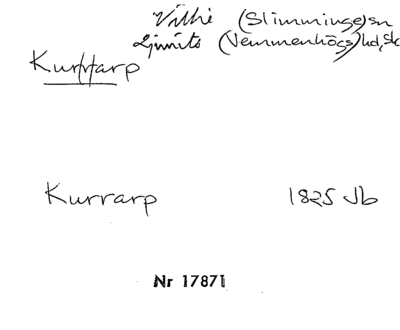 Villie (Slimminge) sn
Ljunits (Vemmenhögs) hd, Sk
Kurrarp
Kurrarp 1825 Jb
Nr 17871